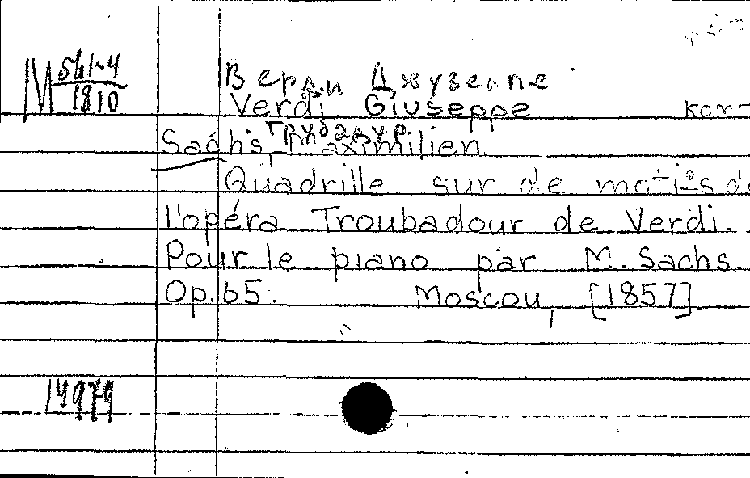 М 561-4
1810
Верди Джузеппе
Verdi Giuseppe
Трубадур
Sachs, Maximilien
Quadrille sur de motifs de
l'opéra Troubadour de Verdi.
Pour le piano par M. Sachs
Op. 65. Moscou, [1857]